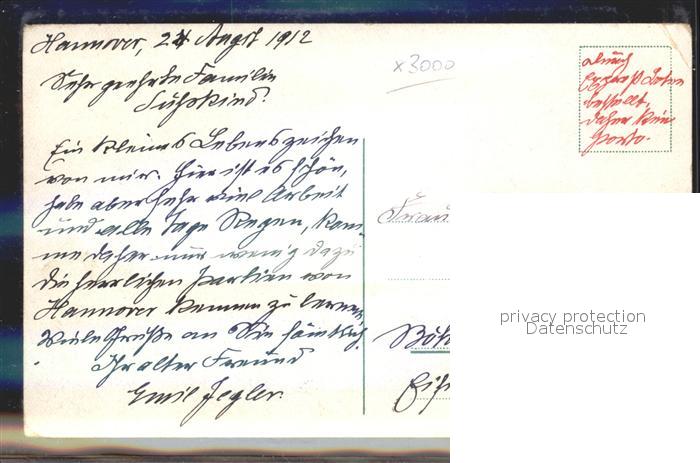 Hannover, 24 Augst 1912
Sehr geehrte Familie
Süßkind!
Ein kleines Lebenszeichen
von mir. Hier ist es schön,
habe aber sehr viel Arbeit
und alle Tage Regen, kom-
me daher nur wenig dazu
die herrlichen Partien von
Hannover kennen zu lernen.
Viele Grüße an Sie sämtlich.
Ihr alter Freund
Emil Jegler.
x3000
durch
Boten
bestellt,
daher kein
Porto.
Frau
privacy protection
Datenschutz